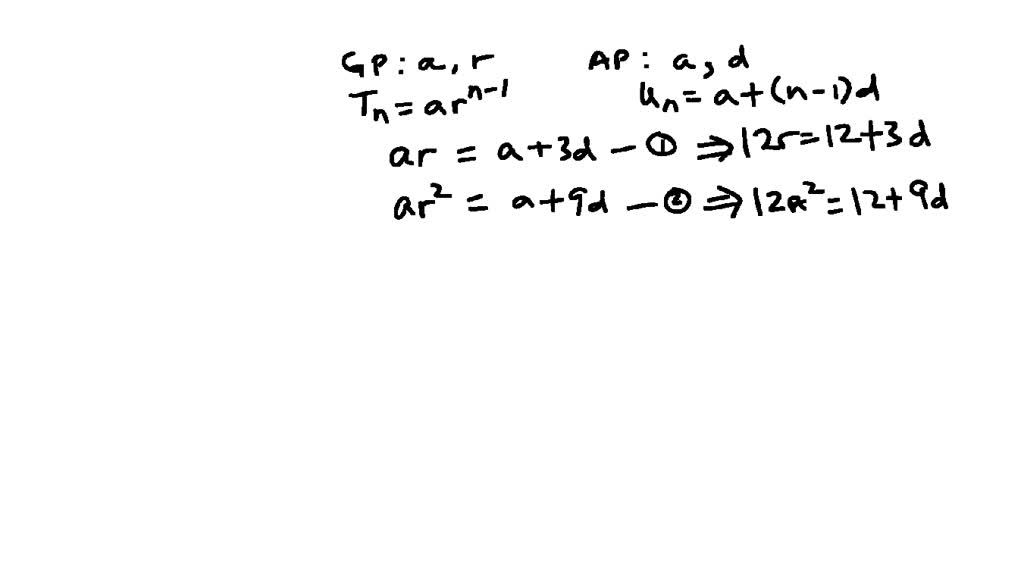 GP : a, r AP : a, d
Tₙ = arⁿ⁻¹ uₙ = a + (n-1)d
ar = a + 3d - ① ⇒ 12r = 12 + 3d
ar² = a + 9d - ② ⇒ 12r² = 12 + 9d